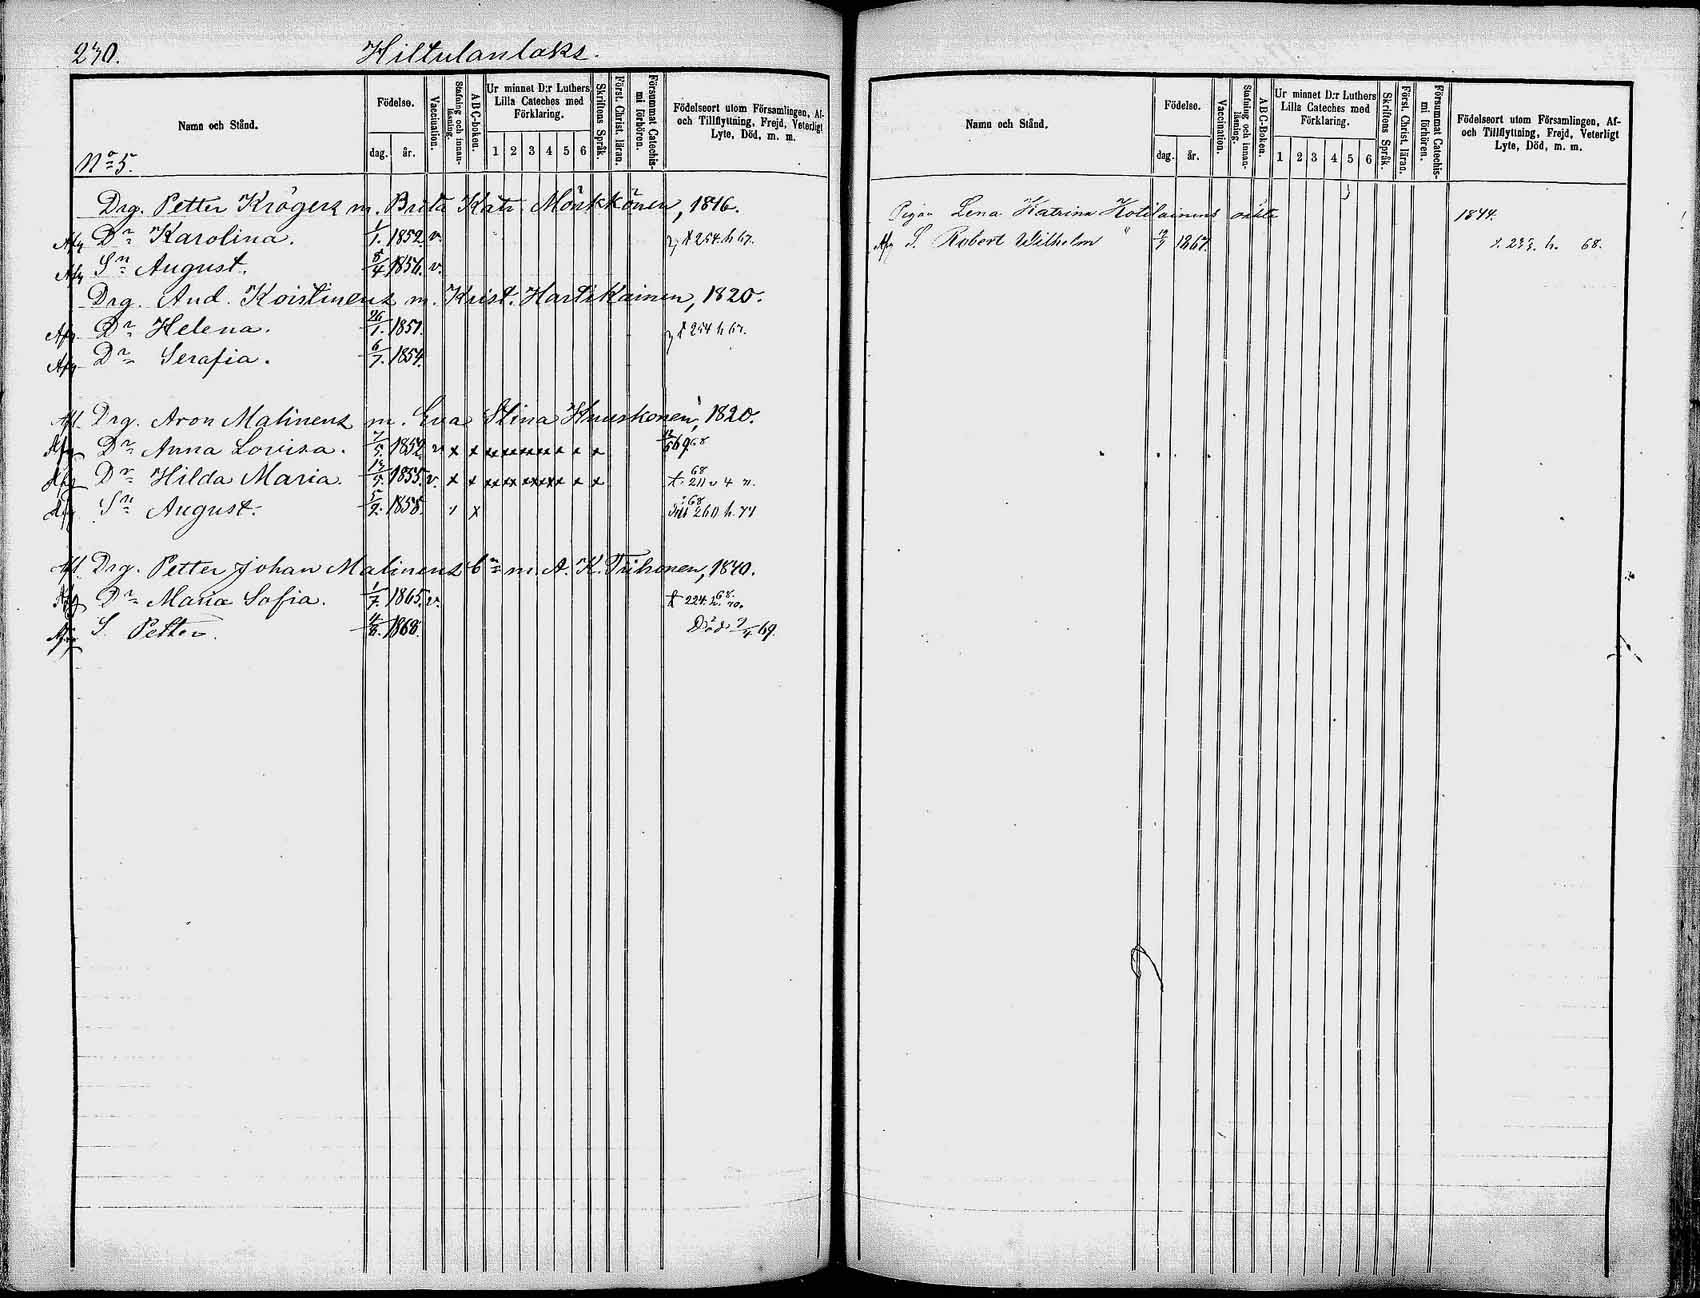 230. Hiltulanlaks.
Namn och Stånd.
Födelse.
dag. år.
Vaccination.
Stafning och innanläsning.
A B C-boken.
Ur minnet D:r Luthers Lilla Cateches med Förklaring.
1 2 3 4 5 6
Skriftens Språk.
Först. Christ. läran.
Försummat Catechismi förhören.
Födelseort utom Församlingen, Af- och Tillflyttning, Frejd, Veterligt Lyte, Död, m. m.
No 5.
Drg. Petter Krögers m. Brita Katr. Mönkkönen, 1816.
Afg Dr Karolina. 1/1. 1852. v. t 254. h 67.
Afg Sn August. 5/4 1856. v.
Drg. And. Koistinens m. Krist. Hartikainen, 1820.
Afg Dr Helena. 26/1. 1851. t 254 h 67.
Afg Dr Serafia. 6/7. 1854.
Drg. Aron Malinens m. Eva Stina Huuskonen, 1820.
Dr Anna Lovisa. 7/5. 1852. v x x x x x x x x x x x
Dr Hilda Maria. 1855. v. x x x x x x x x x x
Sn August. 5/9. 1858. x 260 h. 71
Drg. Petter Johan Malinens m. A. K. Tiihonen, 1840.
Dr Maria Sofia. 1/7. 1865. v. t 224. h. 70.
S. Petter. 1868. Död 7/4 69.
Namn och Stånd.
Födelse.
dag. år.
Vaccination.
Stafning och innanläsning.
A B C-Boken.
Ur minnet D:r Luthers Lilla Cateches med Förklaring.
1 2 3 4 5 6
Skriftens Språk.
Först. Christ. läran.
Försummat Catechismi förhören.
Födelseort utom Församlingen, Af- och Tillflyttning, Frejd, Veterligt Lyte, Död, m. m.
Pigan Lena Katrina Kotilainens oäkta 1844.
Afg S. Robert Wilhelm " 1867. h. 68.